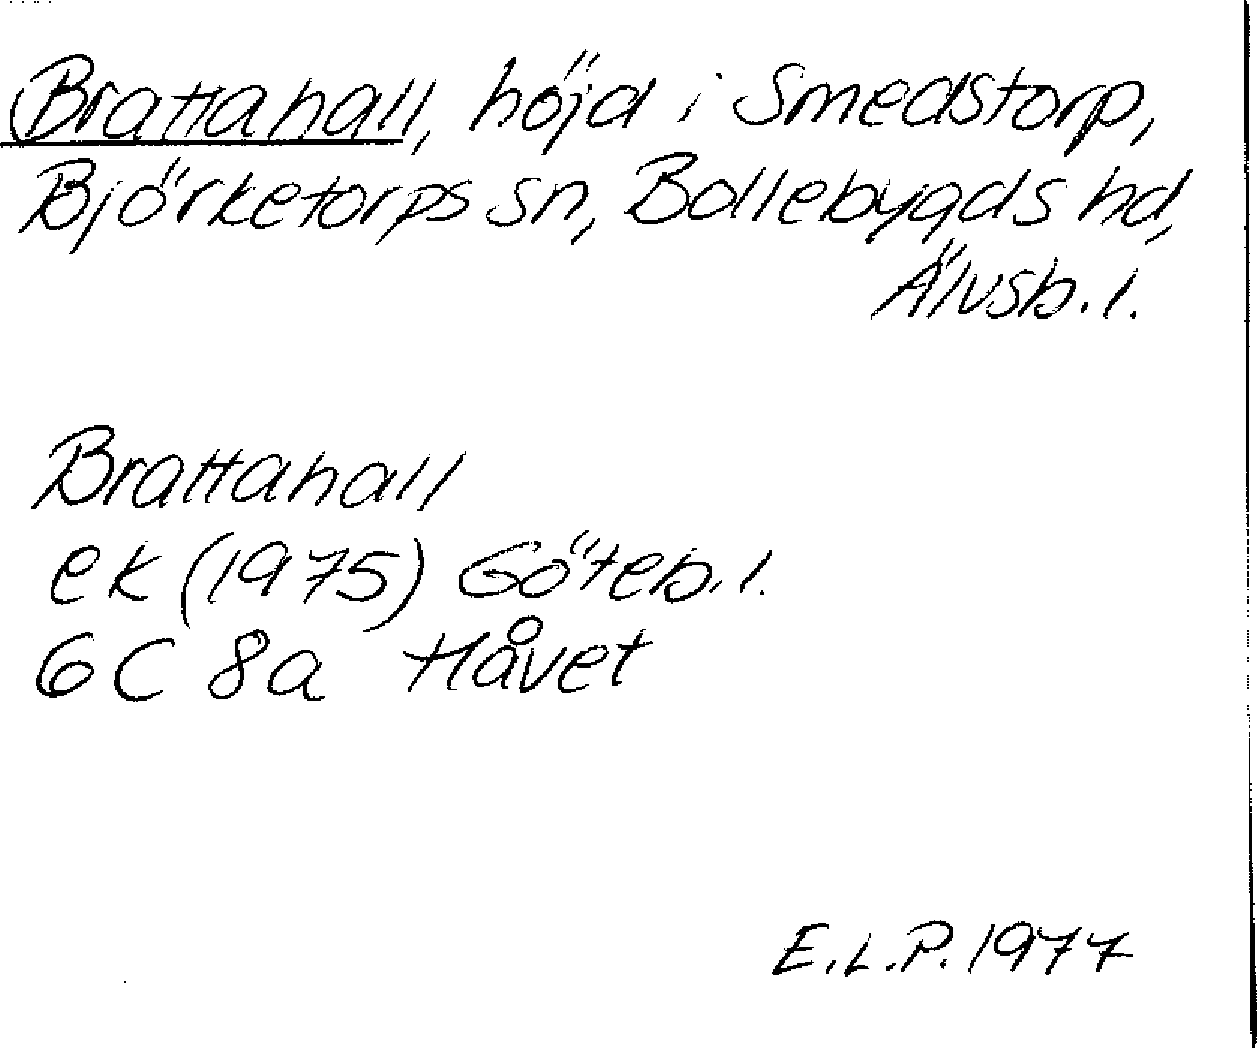 Brattahall, höjd i Smedstorp,
Björketorps sn, Bollebygds hd,
Älvsb. l.
Brattahall
ek (1975) Göteb. l.
6C 8a Håvet
E.L.P. 1977